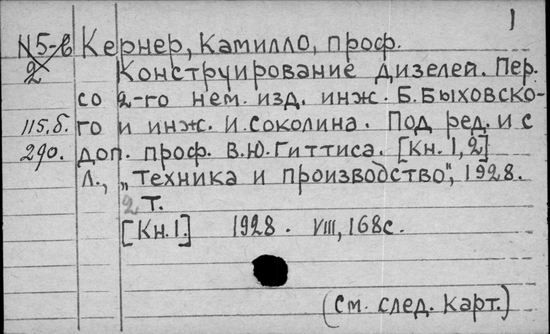 1
N5-в Кернер, Камилло, проф.
2 Конструирование дизелей. Пер.
со 2-го нем. изд. инж. Б. Быховско-
115.б. го и инж. И. Соколина. Под ред. и с
290. доп. проф. В.Ю. Гиттиса. [Кн. 1, 2]
Л., „Техника и производство", 1928.
2 т.
[Кн. 1.] 1928. VIII, 168 с.
(см. след. карт.)